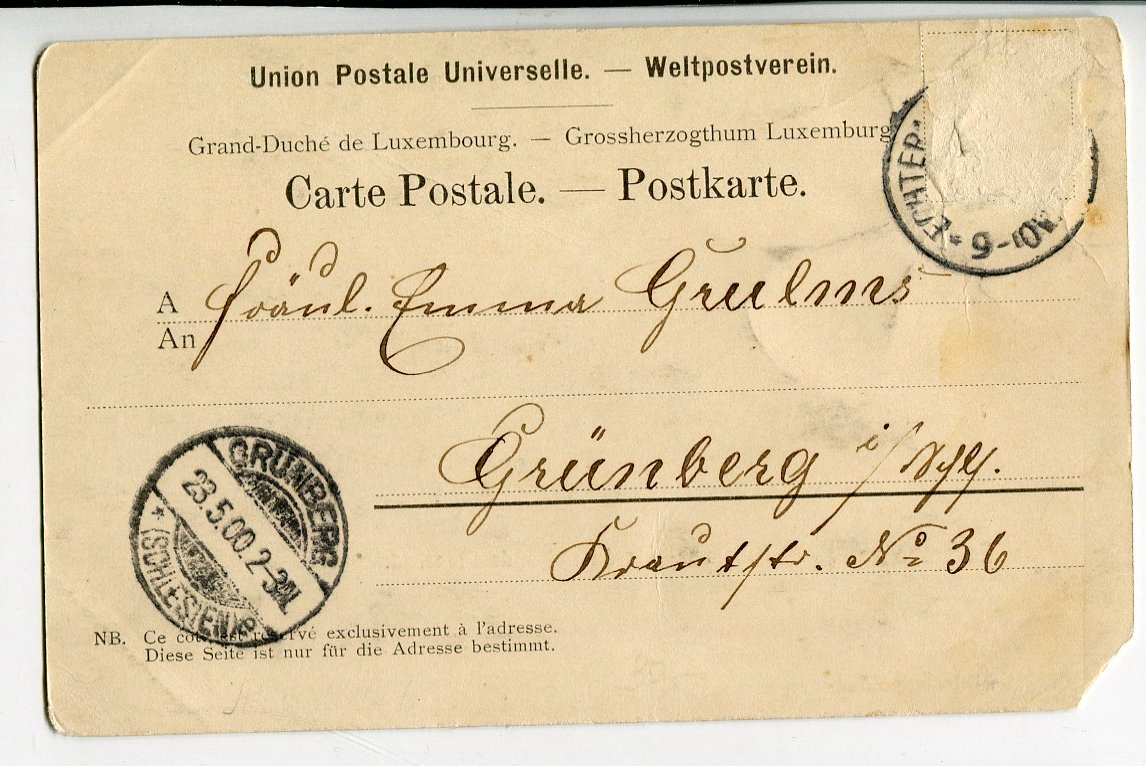 Union Postale Universelle. — Weltpostverein.
Grand-Duché de Luxembourg. — Grossherzogthum Luxemburg
Carte Postale. — Postkarte.
ECHTER
* 9-10V.
A Fräul. Emma Grulms
An
Grünberg i/Schl.
Krautstr. No 36
GRÜNBERG
23.5.00.2-3N.
* (SCHLESIEN)
NB. Ce côté est réservé exclusivement à l'adresse.
Diese Seite ist nur für die Adresse bestimmt.